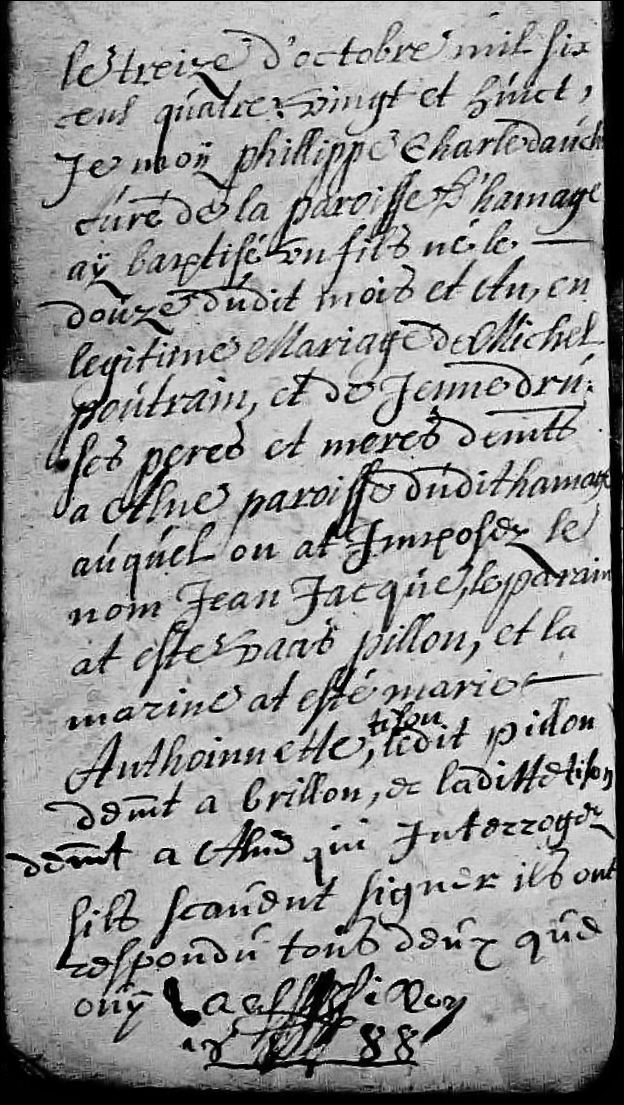 le treize d'octobre mil six
cens quatre vingt et huict,
Je moÿ phillippe Charle dauch
curé de la paroisse d'hamage
aÿ baptisé un fils né le
douze dudit mois et An, en
legitime Mariage de Michel
poutrain, et de Jenne dru.
ses peres et meres demts
a Alne paroisse dudit hamage
auquel on at Imposez le
nom Jean Jacque, le parain
at esté vaas pillon, et la
marine at esté marie
Anthoinnette, tison ledit pillon
demt a brillon, et laditte tison
demt a Alne qui Interrogez
sils scavent signer ils ont
respondu tous deux que
ouÿ
88